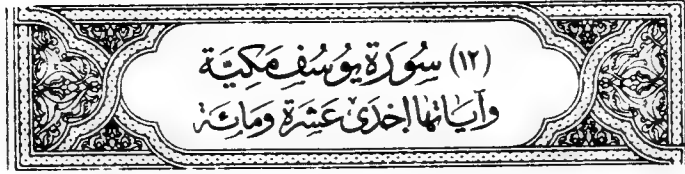 (١٢) سُورَة يُوسُف مَكِيَّة
وَآيَاتُهَا إِحْدَىٰ عَشَرَة وَمِائَة